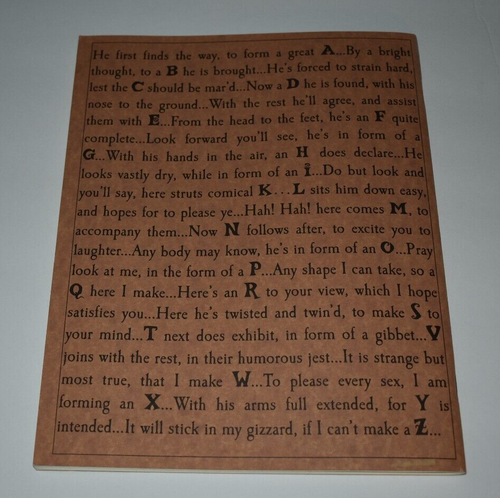 He first finds the way, to form a great A...By a bright
thought, to a B he is brought...He's forced to strain hard,
lest the C should be mar'd...Now a D he is found, with his
nose to the ground...With the rest he'll agree, and assist
them with E...From the head to the feet, he's an F quite
complete...Look forward you'll see, he's in form of a
G...With his hands in the air, an H does declare...He
looks vastly dry, while in form of an I...Do but look and
you'll say, here struts comical K...L sits him down easy,
and hopes for to please ye...Hah! Hah! here comes M, to
accompany them...Now N follows after, to excite you to
laughter...Any body may know, he's in form of an O...Pray
look at me, in the form of a P...Any shape I can take, so a
Q here I make...Here's an R to your view, which I hope
satisfies you...Here he's twisted and twin'd, to make S to
your mind...T next does exhibit, in form of a gibbet...V
joins with the rest, in their humorous jest...It is strange but
most true, that I make W...To please every sex, I am
forming an X...With his arms full extended, for Y is
intended...It will stick in my gizzard, if I can't make a Z...